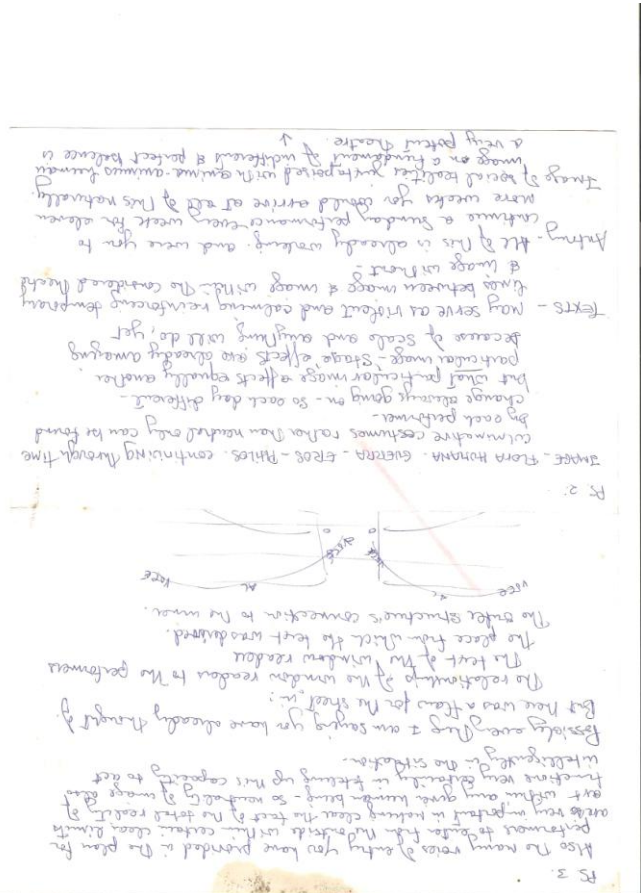 PS 3.
Also the many voices of entry you have provided in the plan for
performers to enter from the outside within certain clear limits
are very important in making clear the fact of the total reality of
art within any given human being - so neutrality of image also
functions very certainly in freeing up this capacity to act
intelligently in the situation -
Possibly every thing I am saying you have already thought of.
But here was a plan for the sheet, in:
The relationship of the window readers to the performers
The text of the window readers
The place from which the text was derived.
The outer structure's connection to the inner.
VOCE
VOCE
VOCE
VOCE
PS. 2.
IMAGE - FLORA HUMANA - GUERRA - EROS - PHILOS. continuing through time
culminative costumes rather than neutral only can be found
by each performer -
change always going on - so each day different -
but what particular image affects equally another
particular image - Stage effects are already amazing
because of scale and anything will do, yet
TEXTS - may serve as violent and calming reinforcing temporary
lines between image & image within the considered
& image without -
- All of this is already working. and were you to
continue a Sunday performance every week for eleven
more weeks you would arrive at all of this naturally
Image of social realities juxtaposed with anima-animus human
image on a fundament of indifferent & perfect balance is
a very potent theatre.